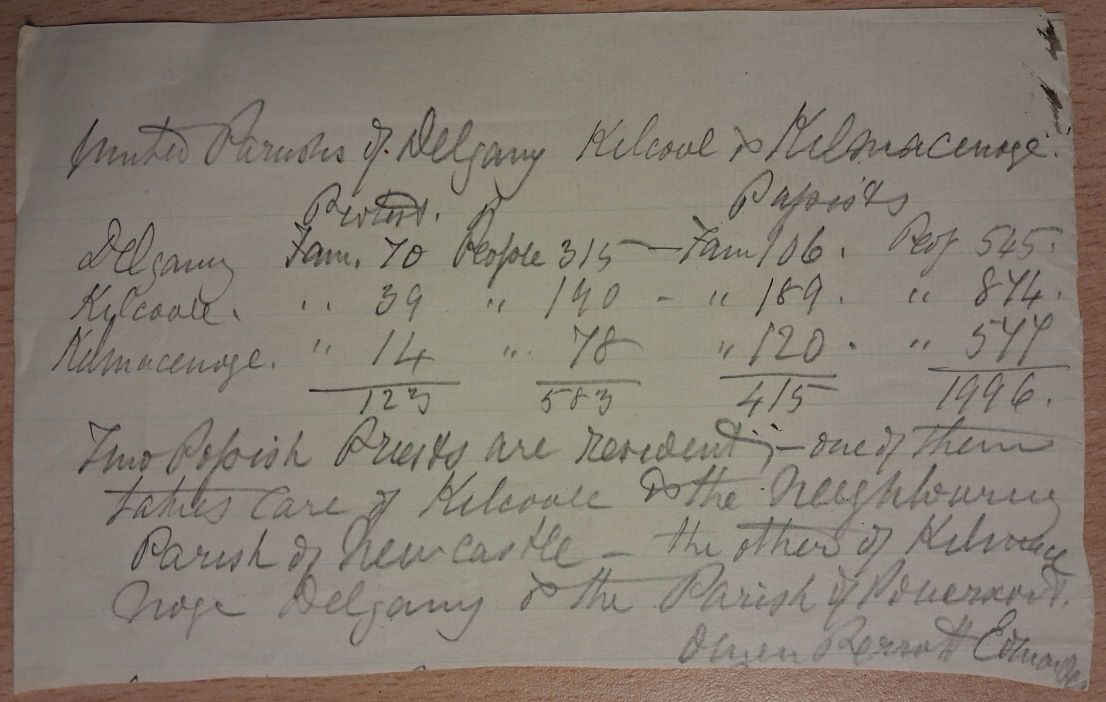 united Parishs of Delgany Kilcoole & Kilmacenoge.
Protest. P Papists
Delgany Fam. 70 People 315 — Fam 106. Peop 545.
Kilcoole. " 39 " 190 - " 189. " 874.
Kilmacenoge. " 14 " 78 " 120. " 577
123 583 415 1996.
Two Popish Priests are resident; — one of them
takes care of Kilcoole & the Neighbouring
Parish of Newcastle — the other of Kilmace
noge Delgany & the Parish of Powerscort.
Owen Perrott